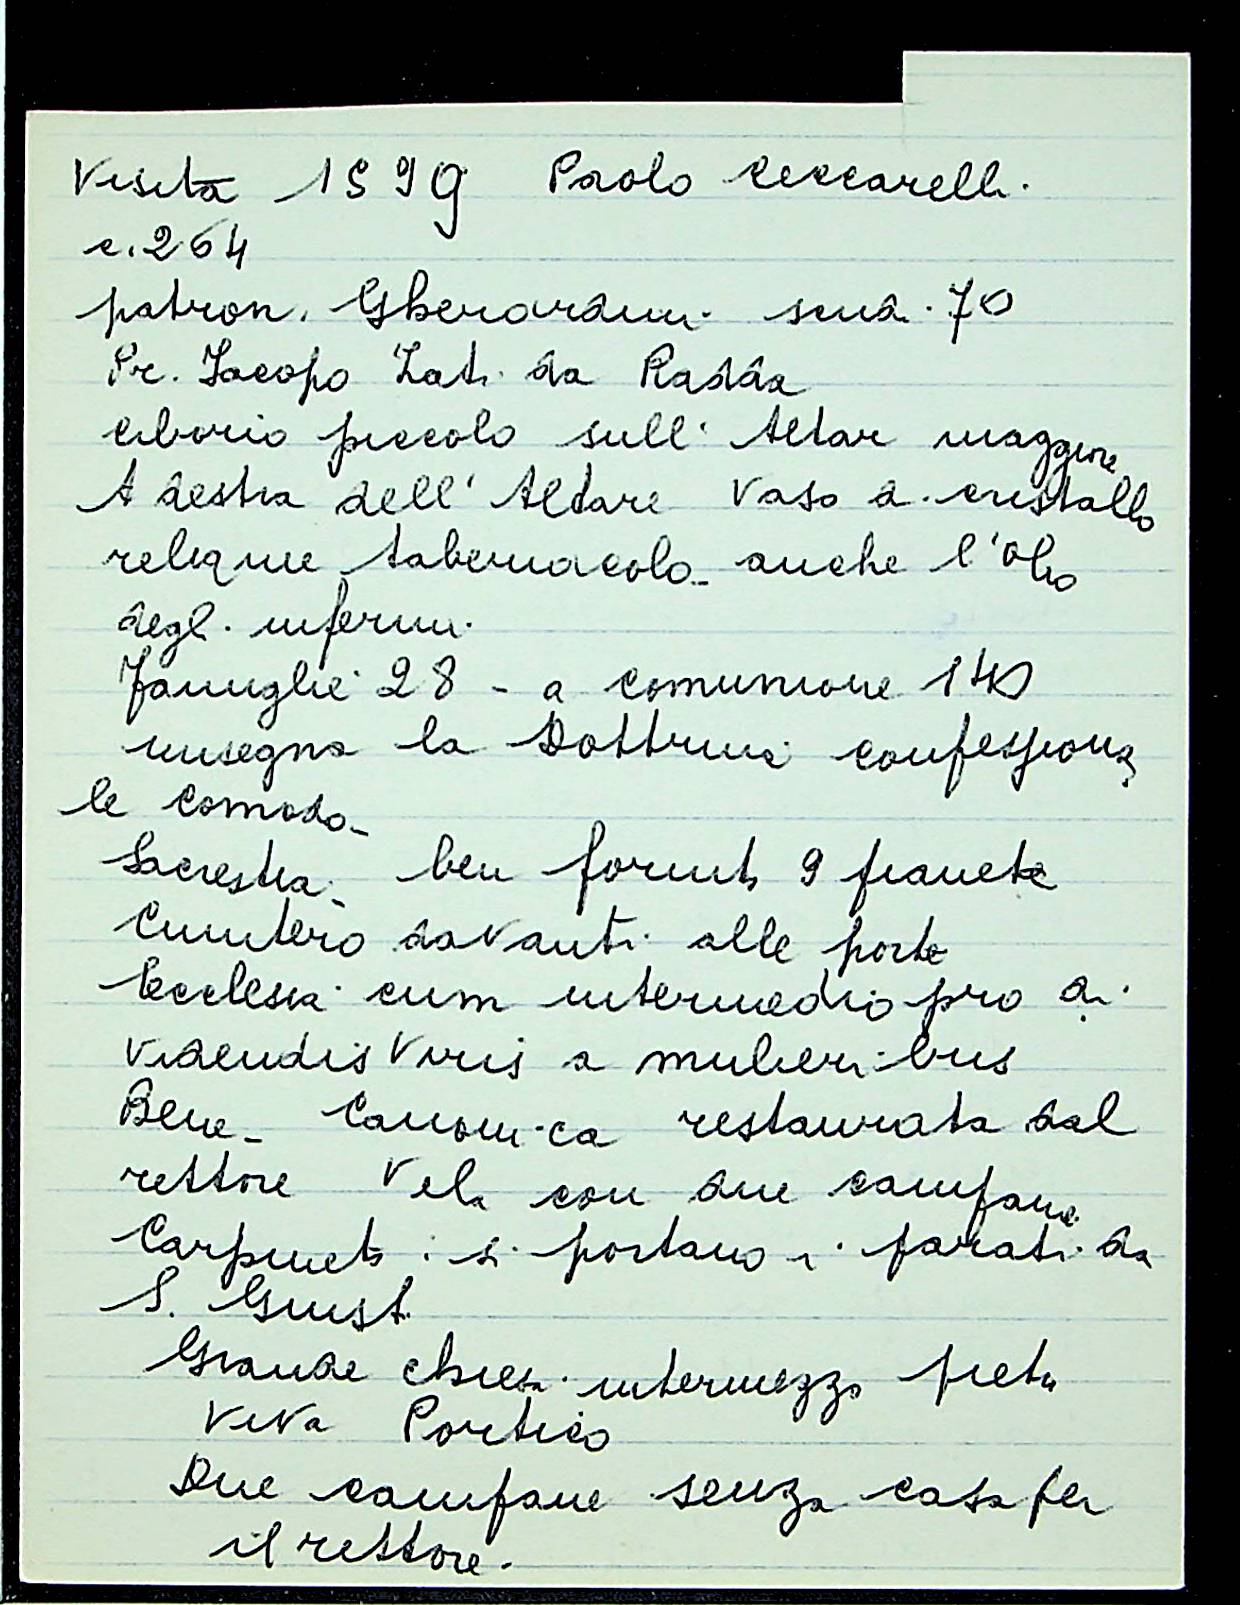 Visita 1599 Paolo Ceccarelli.
c. 264
patron. Gherardini scudi 70
Pr. Jacopo Lati da Radda
ciborio piccolo sull' Altar maggiore
A destra dell' Altare vaso di cristallo
reliquie tabernacolo - anche l'Olio
degli infermi.
Famiglie 28 - a comunione 140
insegna la Dottrina confessiona
le comodo -
Sacrestia - ben fornita 9 pianete
Cimitero davanti alle porte
Ecclesia cum intermedio pro di
videndis viris a mulieribus
Bene - Canonica restaurata dal
rettore Vela con due campane
Carpineto : si portano i parati da
S. Giusto
Grande chiesa intermezzo pietra
viva Portico
Due campane senza casa per
il rettore.